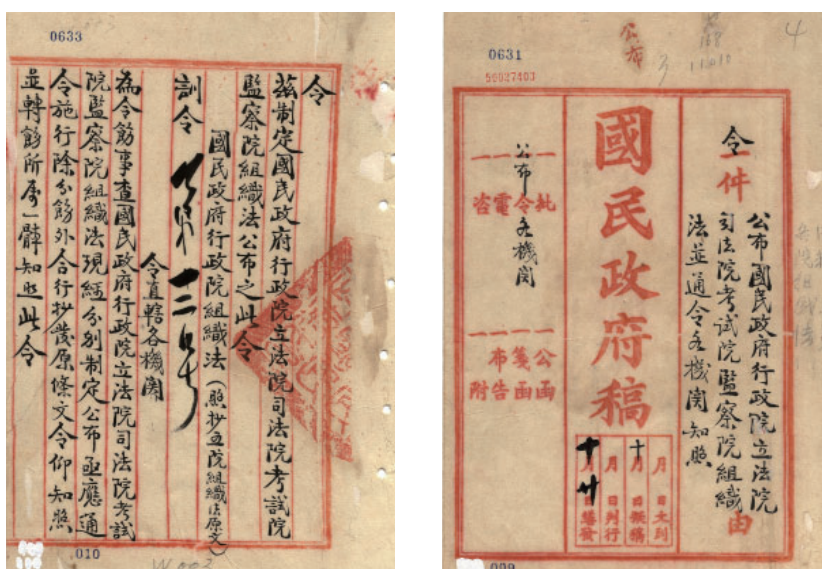 0633
令
茲制定國民政府行政院立法院司法院考試院
監察院組織法公布之此令
國民政府行政院組織法(照抄五院組織法原文)
訓令
令直轄各機關
為令飭事查國民政府行政院立法院司法院考試
院監察院組織法現經分別制定公布亟應通
令施行除分飭外合行抄發原條文令仰知照
並轉飭所屬一體知照此令
010
公布
4
0631
國民政府稿
令
一件
公布國民政府行政院立法院
司法院考試院監察院組織
法並通令各機關知照
由
一批
一令
一電
一咨
公布令各機關
一公函
一箋函
一布告
一附
月日文到
十月日擬稿
月日列行
十月廿日繕發
009